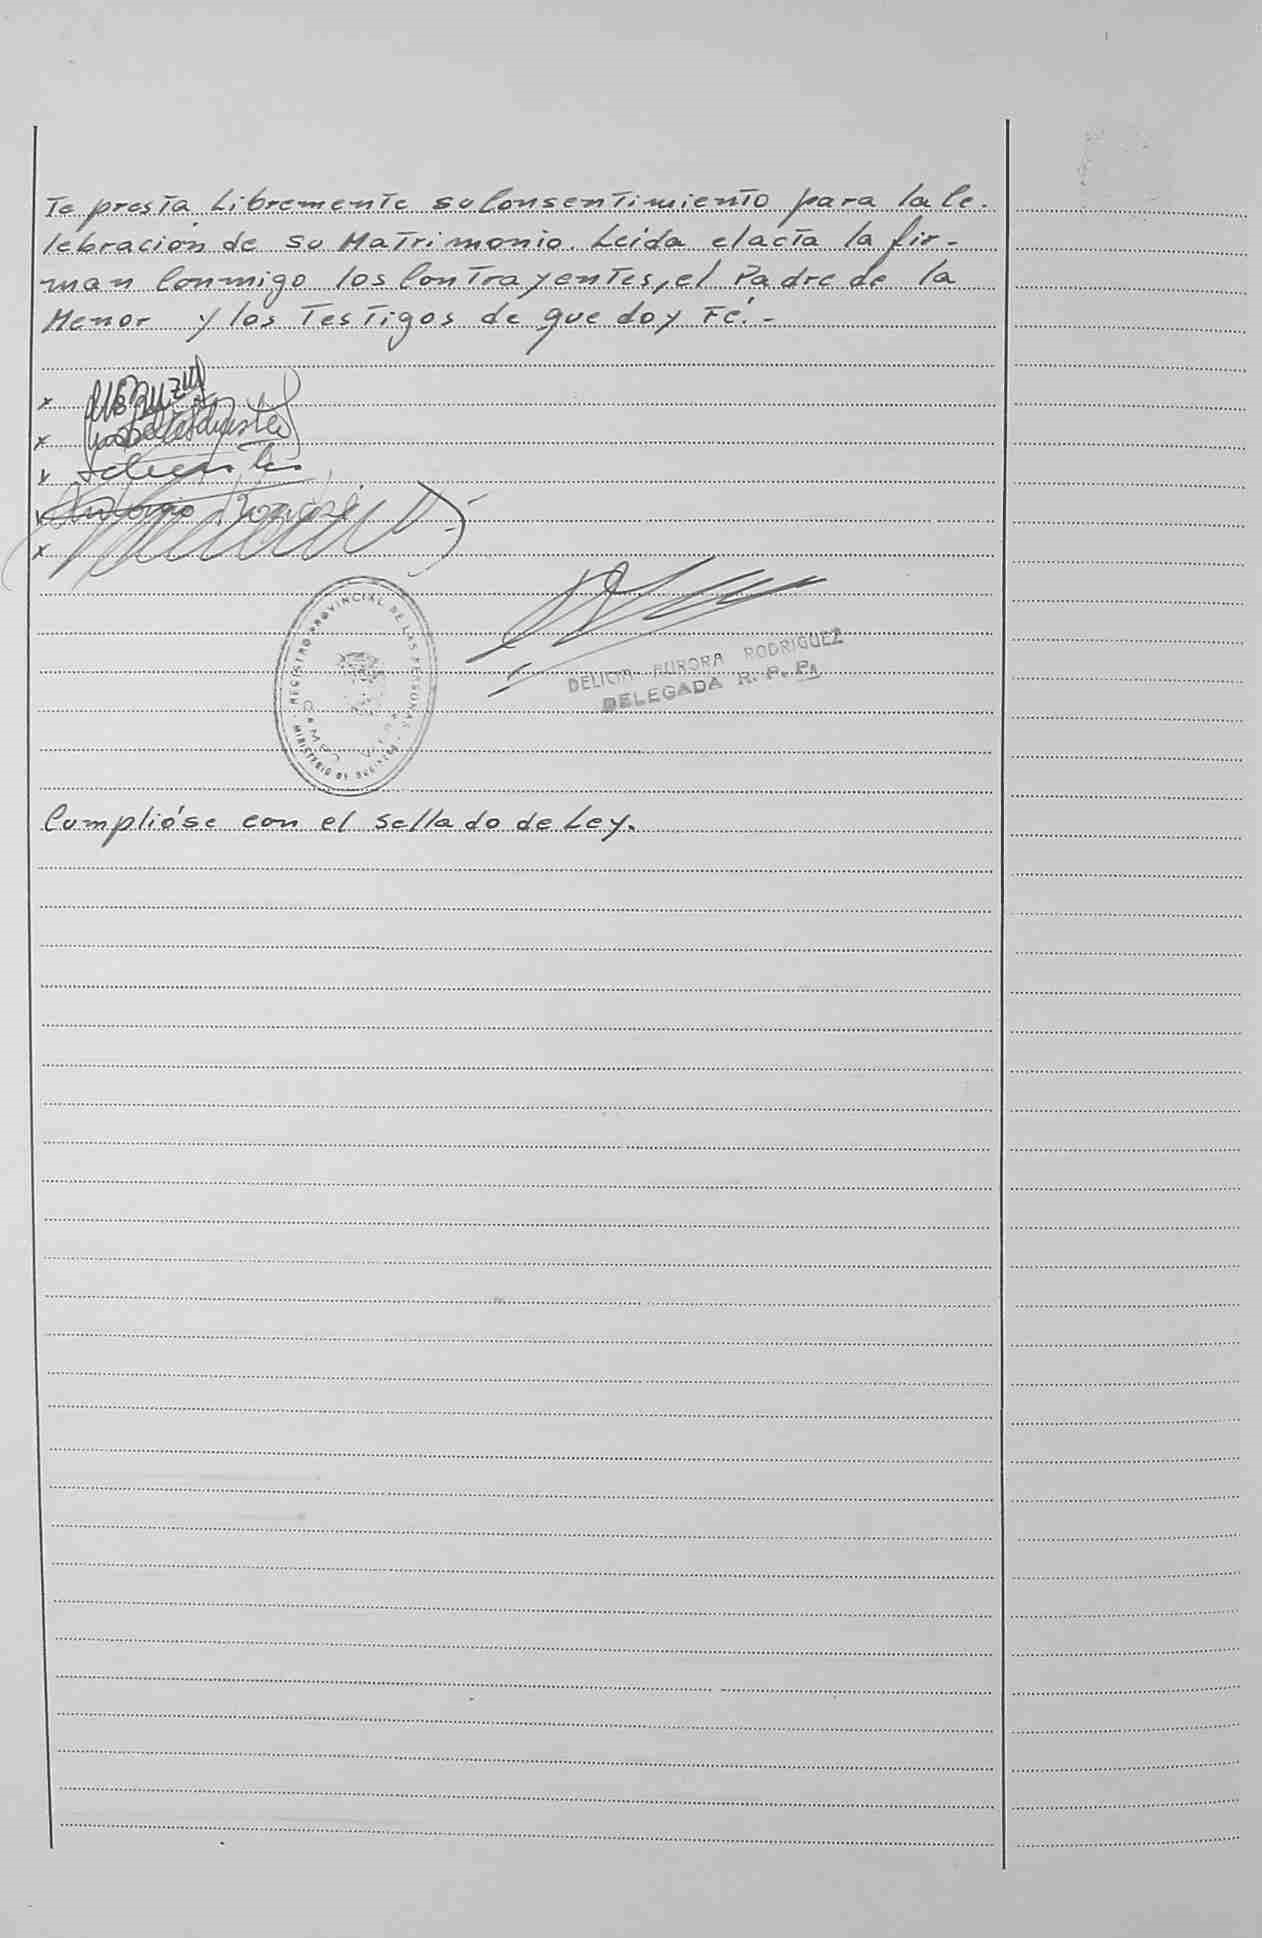 Te presta Libremente su Consentimiento para la Ce-
lebración de su Matrimonio. Leida el acta la fir-
man Conmigo los Contrayentes, el Padre de la
Menor y los Testigos de que doy Fé.-
x
x
x
x Antonio
x
REGISTRO PROVINCIAL DE LAS PERSONAS
MINISTERIO DE
DELICIA AURORA RODRIGUEZ
DELEGADA R. P. P.
Cumplióse con el sellado de Ley.